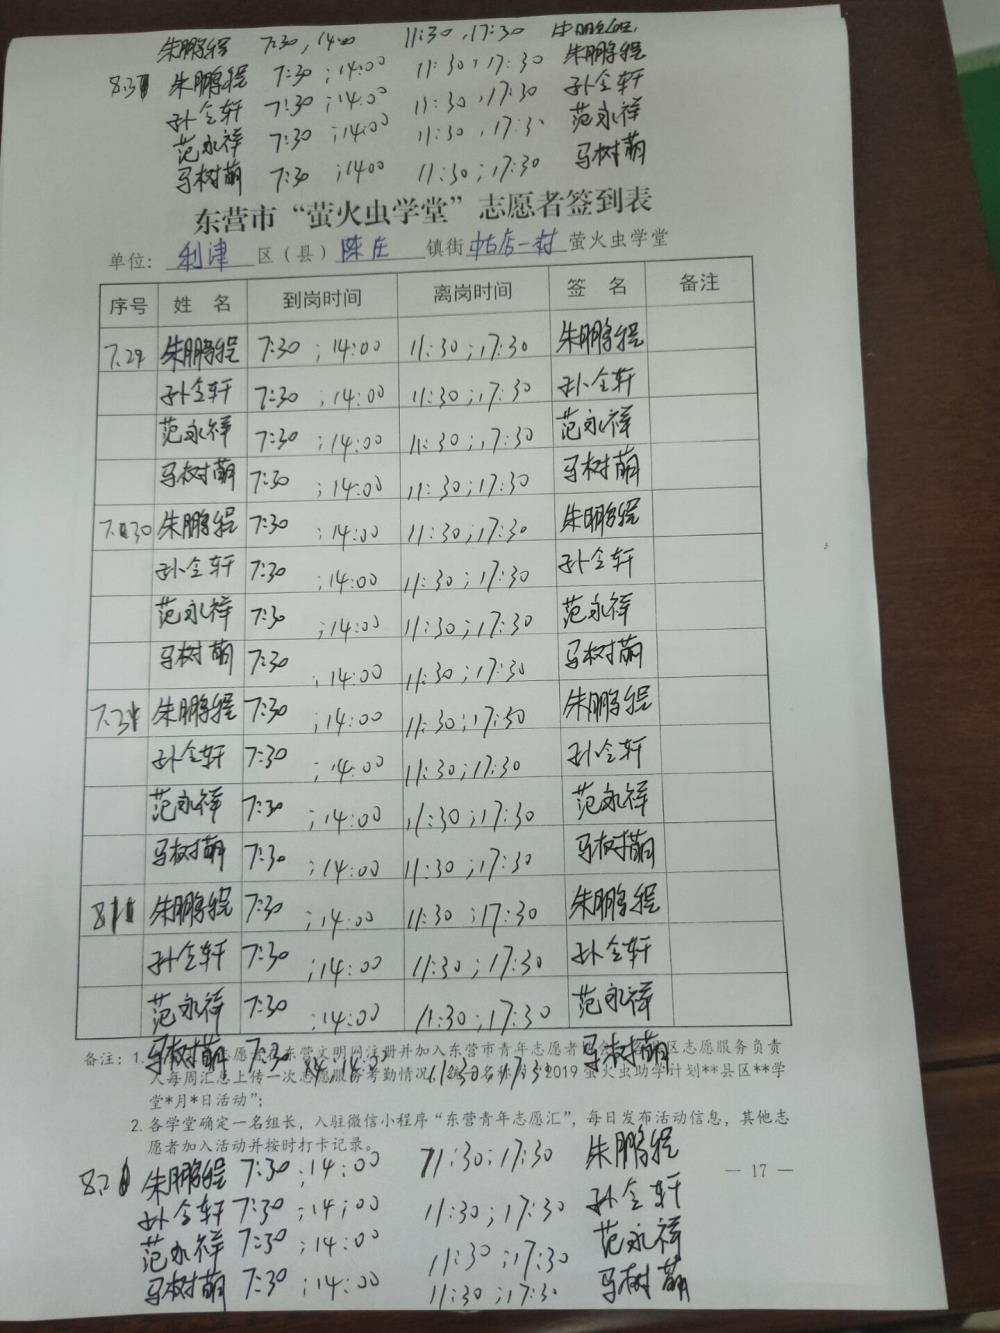 朱鹏程 7:30，14:00 11:30，17:30 朱鹏程
8.3 朱鹏程 7:30；14:00 11:30，17:30 朱鹏程
孙全轩 7:30；14:00 11:30，17:30 孙全轩
范永祥 7:30；14:00 11:30，17:30 范永祥
马树萌 7:30；14:00 11:30；17:30 马树萌
东营市“萤火虫学堂”志愿者签到表
单位：利津区（县）陈庄镇街中古店一村萤火虫学堂
序号 姓名 到岗时间 离岗时间 签名 备注
7.29 朱鹏程 7:30；14:00 11:30；17:30 朱鹏程
孙全轩 7:30；14:00 11:30；17:30 孙全轩
范永祥 7:30；14:00 11:30；17:30 范永祥
马树萌 7:30；14:00 11:30；17:30 马树萌
7.30 朱鹏程 7:30；14:00 11:30；17:30 朱鹏程
孙全轩 7:30；14:00 11:30；17:30 孙全轩
范永祥 7:30；14:00 11:30；17:30 范永祥
马树萌 7:30；14:00 11:30；17:30 马树萌
7.31 朱鹏程 7:30；14:00 11:30；17:30 朱鹏程
孙全轩 7:30；14:00 11:30；17:30 孙全轩
范永祥 7:30；14:00 11:30；17:30 范永祥
马树萌 7:30；14:00 11:30；17:30 马树萌
8.1 朱鹏程 7:30；14:00 11:30；17:30 朱鹏程
孙全轩 7:30；14:00 11:30；17:30 孙全轩
范永祥 7:30；14:00 11:30；17:30 范永祥
马树萌 7:30 14:00 11:30；17:30 马树萌
备注：1. 志愿者在东营文明网注册并加入东营市青年志愿者 区志愿服务负责
人每周汇总上传一次志愿服务考勤情况 2019萤火虫助学计划**县区**学
堂*月*日活动”；
2. 各学堂确定一名组长，入驻微信小程序“东营青年志愿汇”，每日发布活动信息，其他志
愿者加入活动并按时打卡记录。
8.2 朱鹏程 7:30；14:00 11:30；17:30 朱鹏程
— 17 —
孙全轩 7:30；14:00 11:30；17:30 孙全轩
范永祥 7:30；14:00 11:30；17:30 范永祥
马树萌 7:30；14:00 11:30；17:30 马树萌